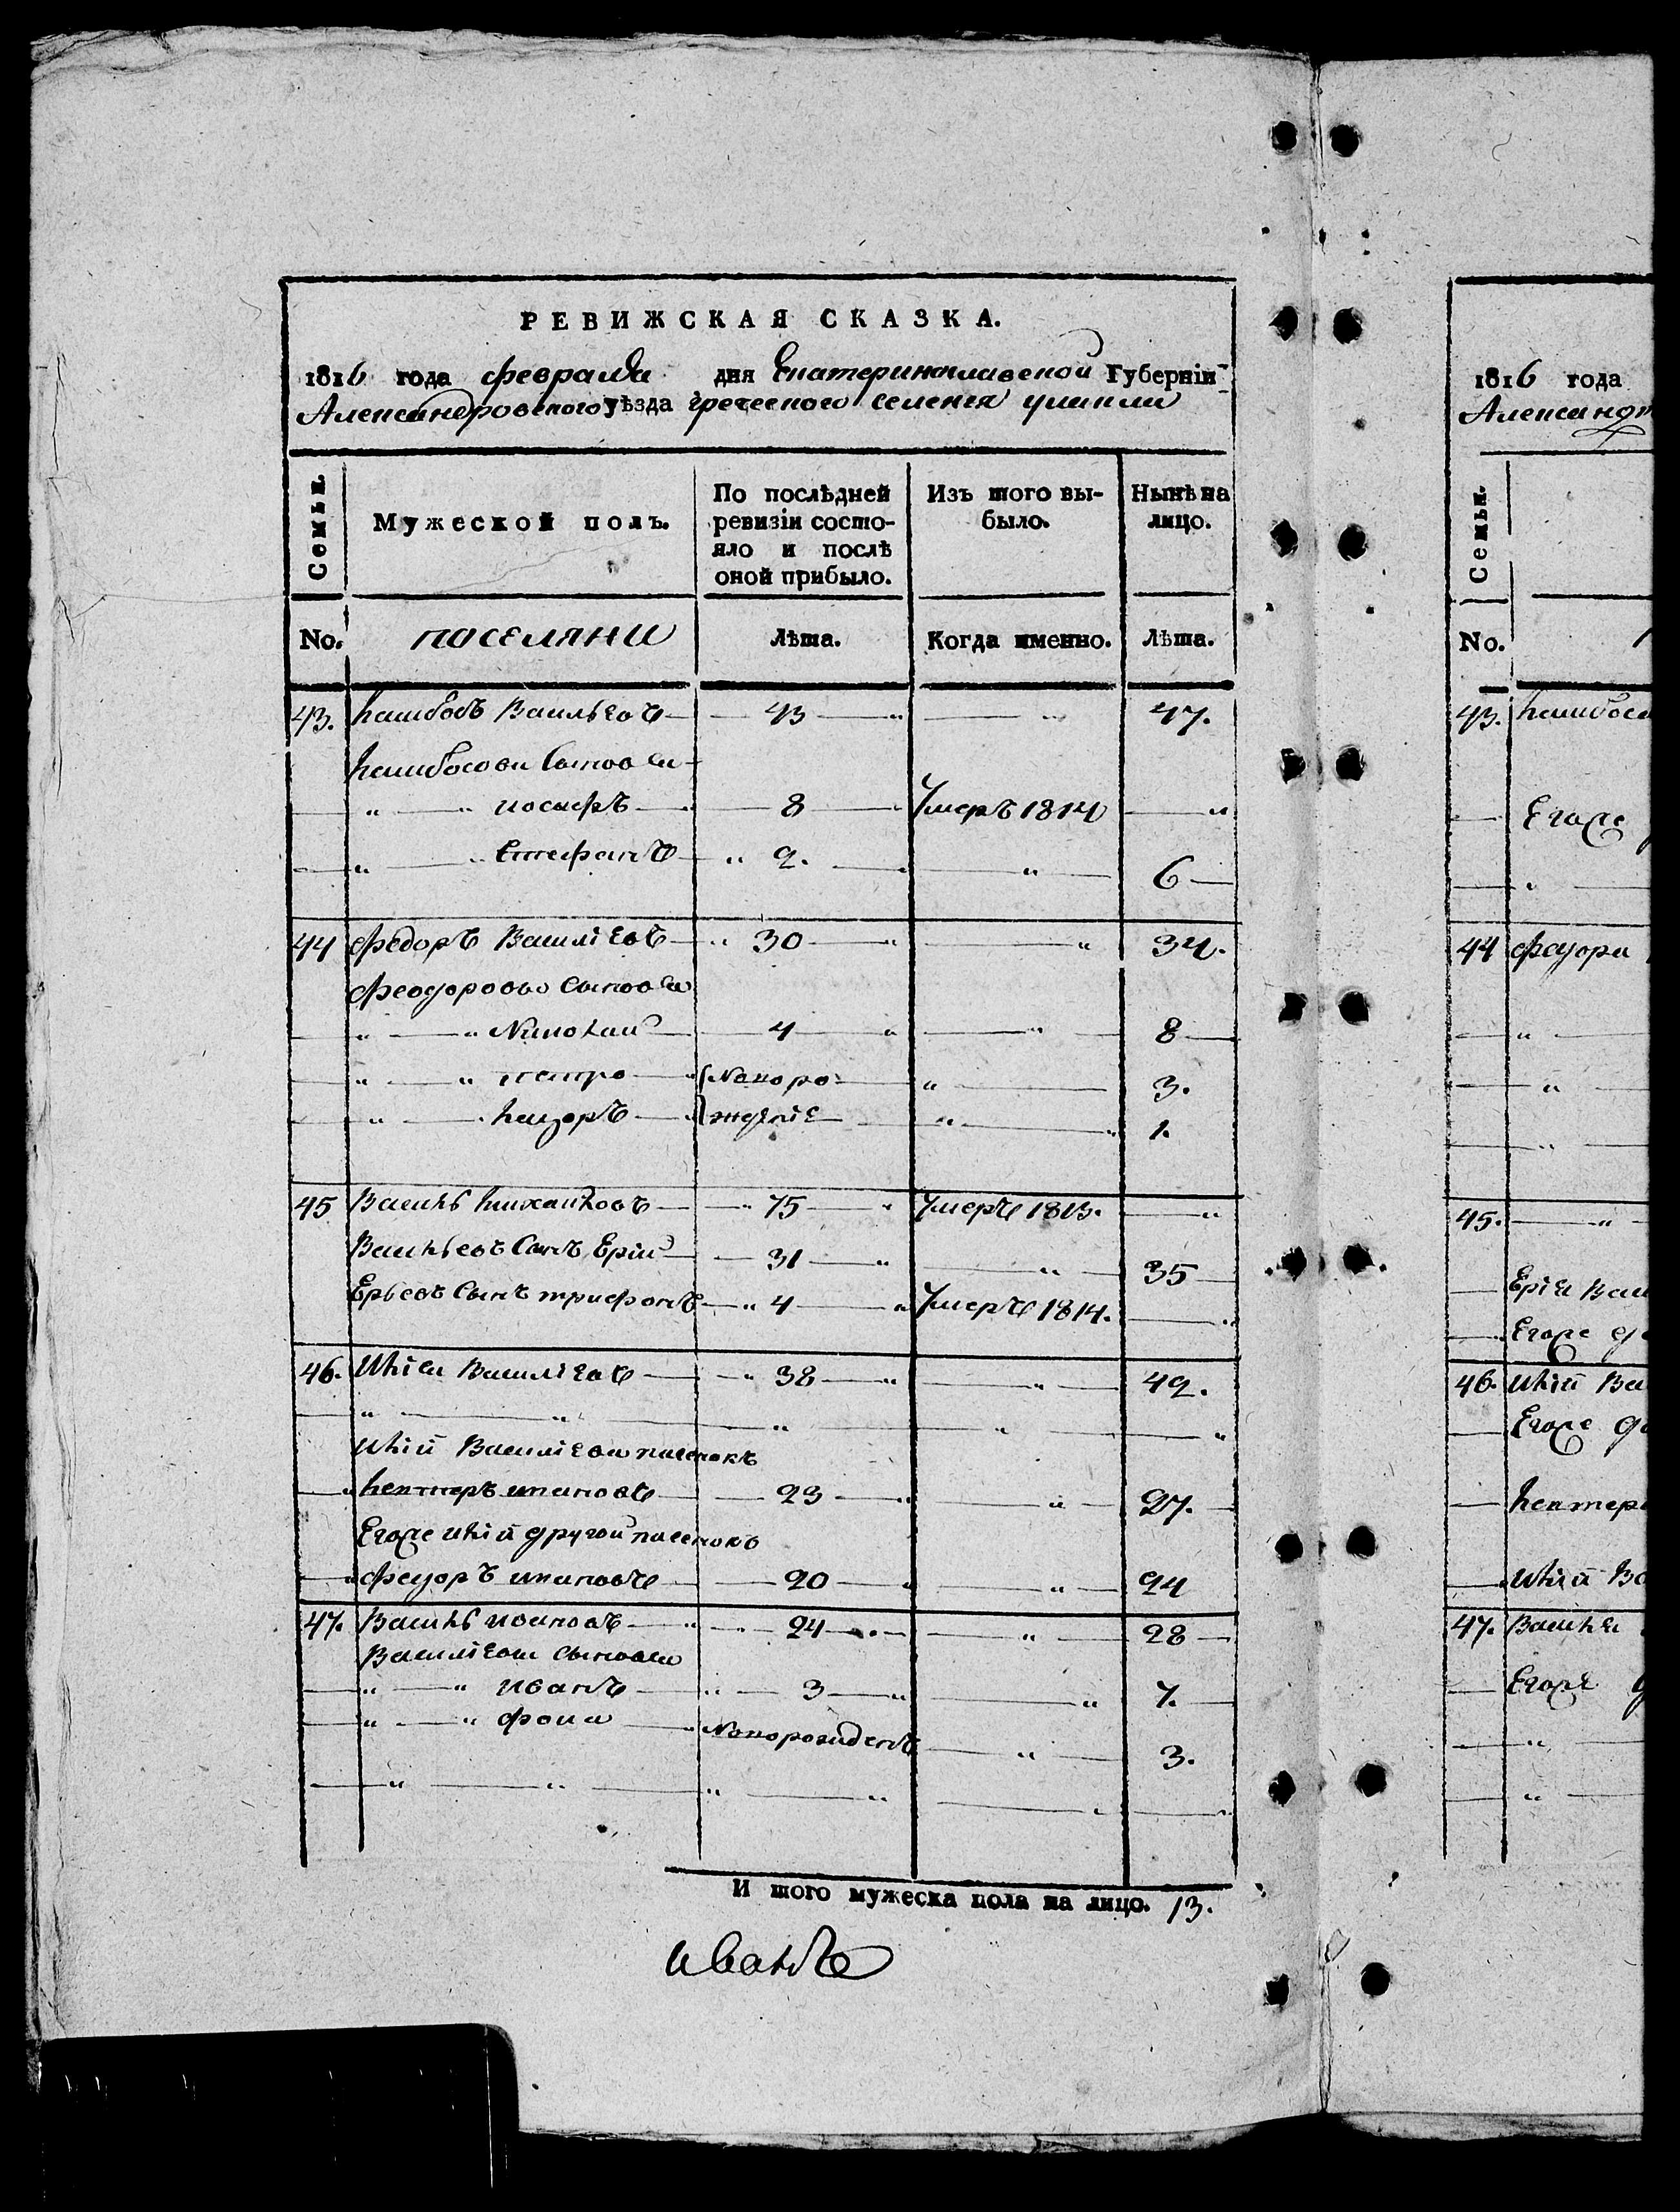 РЕВИЖСКАЯ СКАЗКА.
1816 года февраля дня Екатеринославской Губерніи
Александровского уѣзда греческого селенія
Семьи.
Мужеской полъ.
По послѣдней ревизіи состо-
яло и послѣ
оной прибыло.
Изъ того вы-
было.
Нынѣ на
лицо.
No. поселяни Лѣта. Когда именно. Лѣта.
43. Васильевъ 43 47.
сынове
иосифъ 8 Умеръ 1814
Стефанъ 2. 6
44 Федоръ Василіевъ 30 34.
Феодорово сынове
Николай 4 8
петро Новоро- 3.
Лазоръ жденіе 1.
45 Василь Михайловъ 75 Умеръ 1813.
Васильевъ Сынъ Ерій 31 35
Ерьевъ Сынъ трифонъ 4 Умеръ 1814.
46. Илія Василіевъ 38 42.
Илій Василіева пасенокъ
23 27.
Его же Илій другой пасенокъ
Феуоръ 20 24
47. Василь ивановъ 24 28
Василіева сынове
иванъ 3 7.
фома Новорожденъ 3.
И того мужеска пола на лицо. 13.
иванъ
1816 года
Семьи.
No.
43.
Его же
44 Феуора
45.
Ерія
Его же
46. Илій
Его же
Илій
47.
Его же